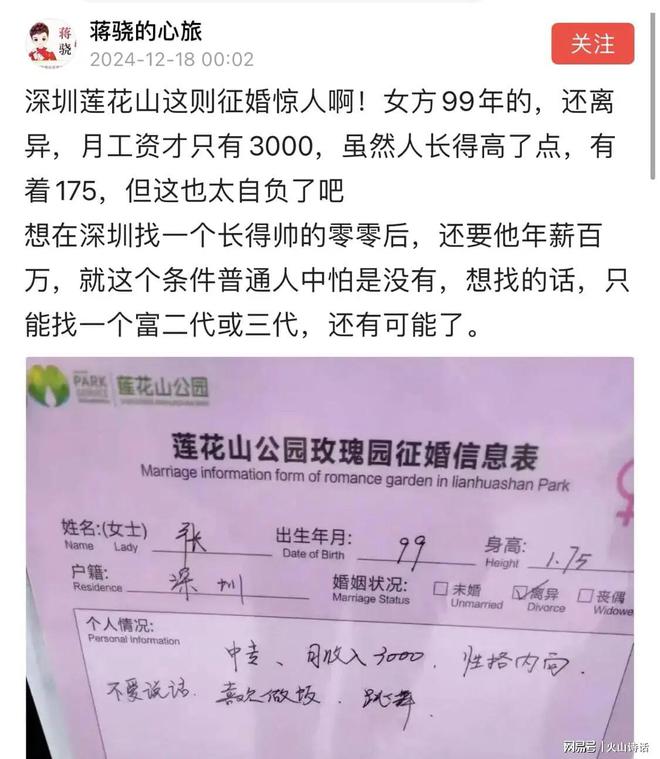 蒋骁
蒋骁的心旅
2024-12-18 00:02
关注
深圳莲花山这则征婚惊人啊！女方99年的，还离
异，月工资才只有3000，虽然人长得高了点，有
着175，但这也太自负了吧
想在深圳找一个长得帅的零零后，还要他年薪百
万，就这个条件普通人中怕是没有，想找的话，只
能找一个富二代或三代，还有可能了。
PARK 莲花山公园
莲花山公园玫瑰园征婚信息表
Marriage information form of romance garden in lianhuashan Park
姓名:(女士) 张 出生年月: 99 身高: 1.75
Name Lady Date of Birth Height
户籍: 深圳 婚姻状况: □未婚 ☑离异 □丧偶
Residence Marriage Status Unmarried Divorce Widowe
个人情况:
Personal information
中专、月收入3000. 性格内向.
不爱说话. 喜欢做饭. 跳舞.
网易号 | 火山诗话